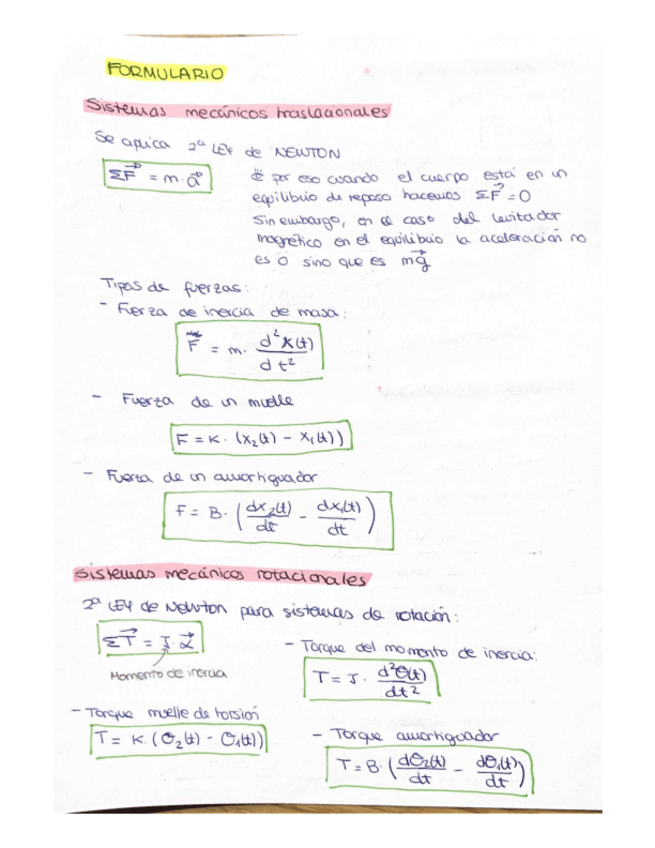 FORMULARIO
Sistemas mecánicos traslacionales
Se aplica 2ª LEY de NEWTON
ΣF⃗ = m·a⃗
* por eso cuando el cuerpo está en un
equilibrio de reposo hacemos ΣF⃗ = 0
Sin embargo, en el caso del levitador
magnético en el equilibrio la aceleración no
es 0 sino que es mg⃗
Tipos de fuerzas:
- Fuerza de inercia de masa:
F = m· d²x(t)/dt²
- Fuerza de un muelle
F = K· (x₂(t) - x₁(t))
- Fuerza de un amortiguador
F = B· (dx₂(t)/dt - dx₁(t)/dt)
Sistemas mecánicos rotacionales
2ª LEY de NEWTON para sistemas de rotación:
ΣT⃗ = J·α⃗
Momento de inercia
- Torque del momento de inercia:
T = J· d²θ(t)/dt²
- Torque muelle de torsión
T = K·(θ₂(t) - θ₁(t))
- Torque amortiguador
T = B·(dθ₂(t)/dt - dθ₁(t)/dt)